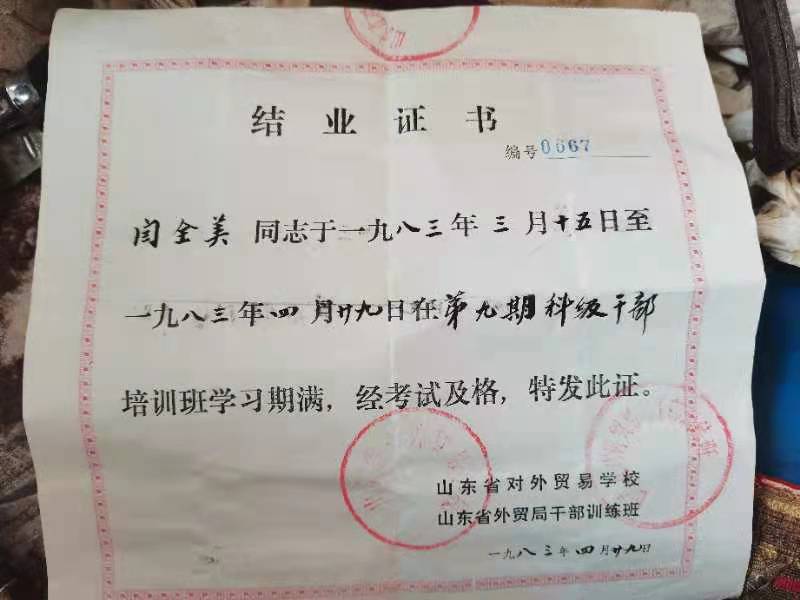 结业证书
编号0667
闫全美同志于一九八三年三月十五日至
一九八三年四月廿九日在第九期科级干部
培训班学习期满，经考试及格，特发此证。
山东省对外贸易学校
山东省外贸局干部训练班
一九八三年四月廿九日